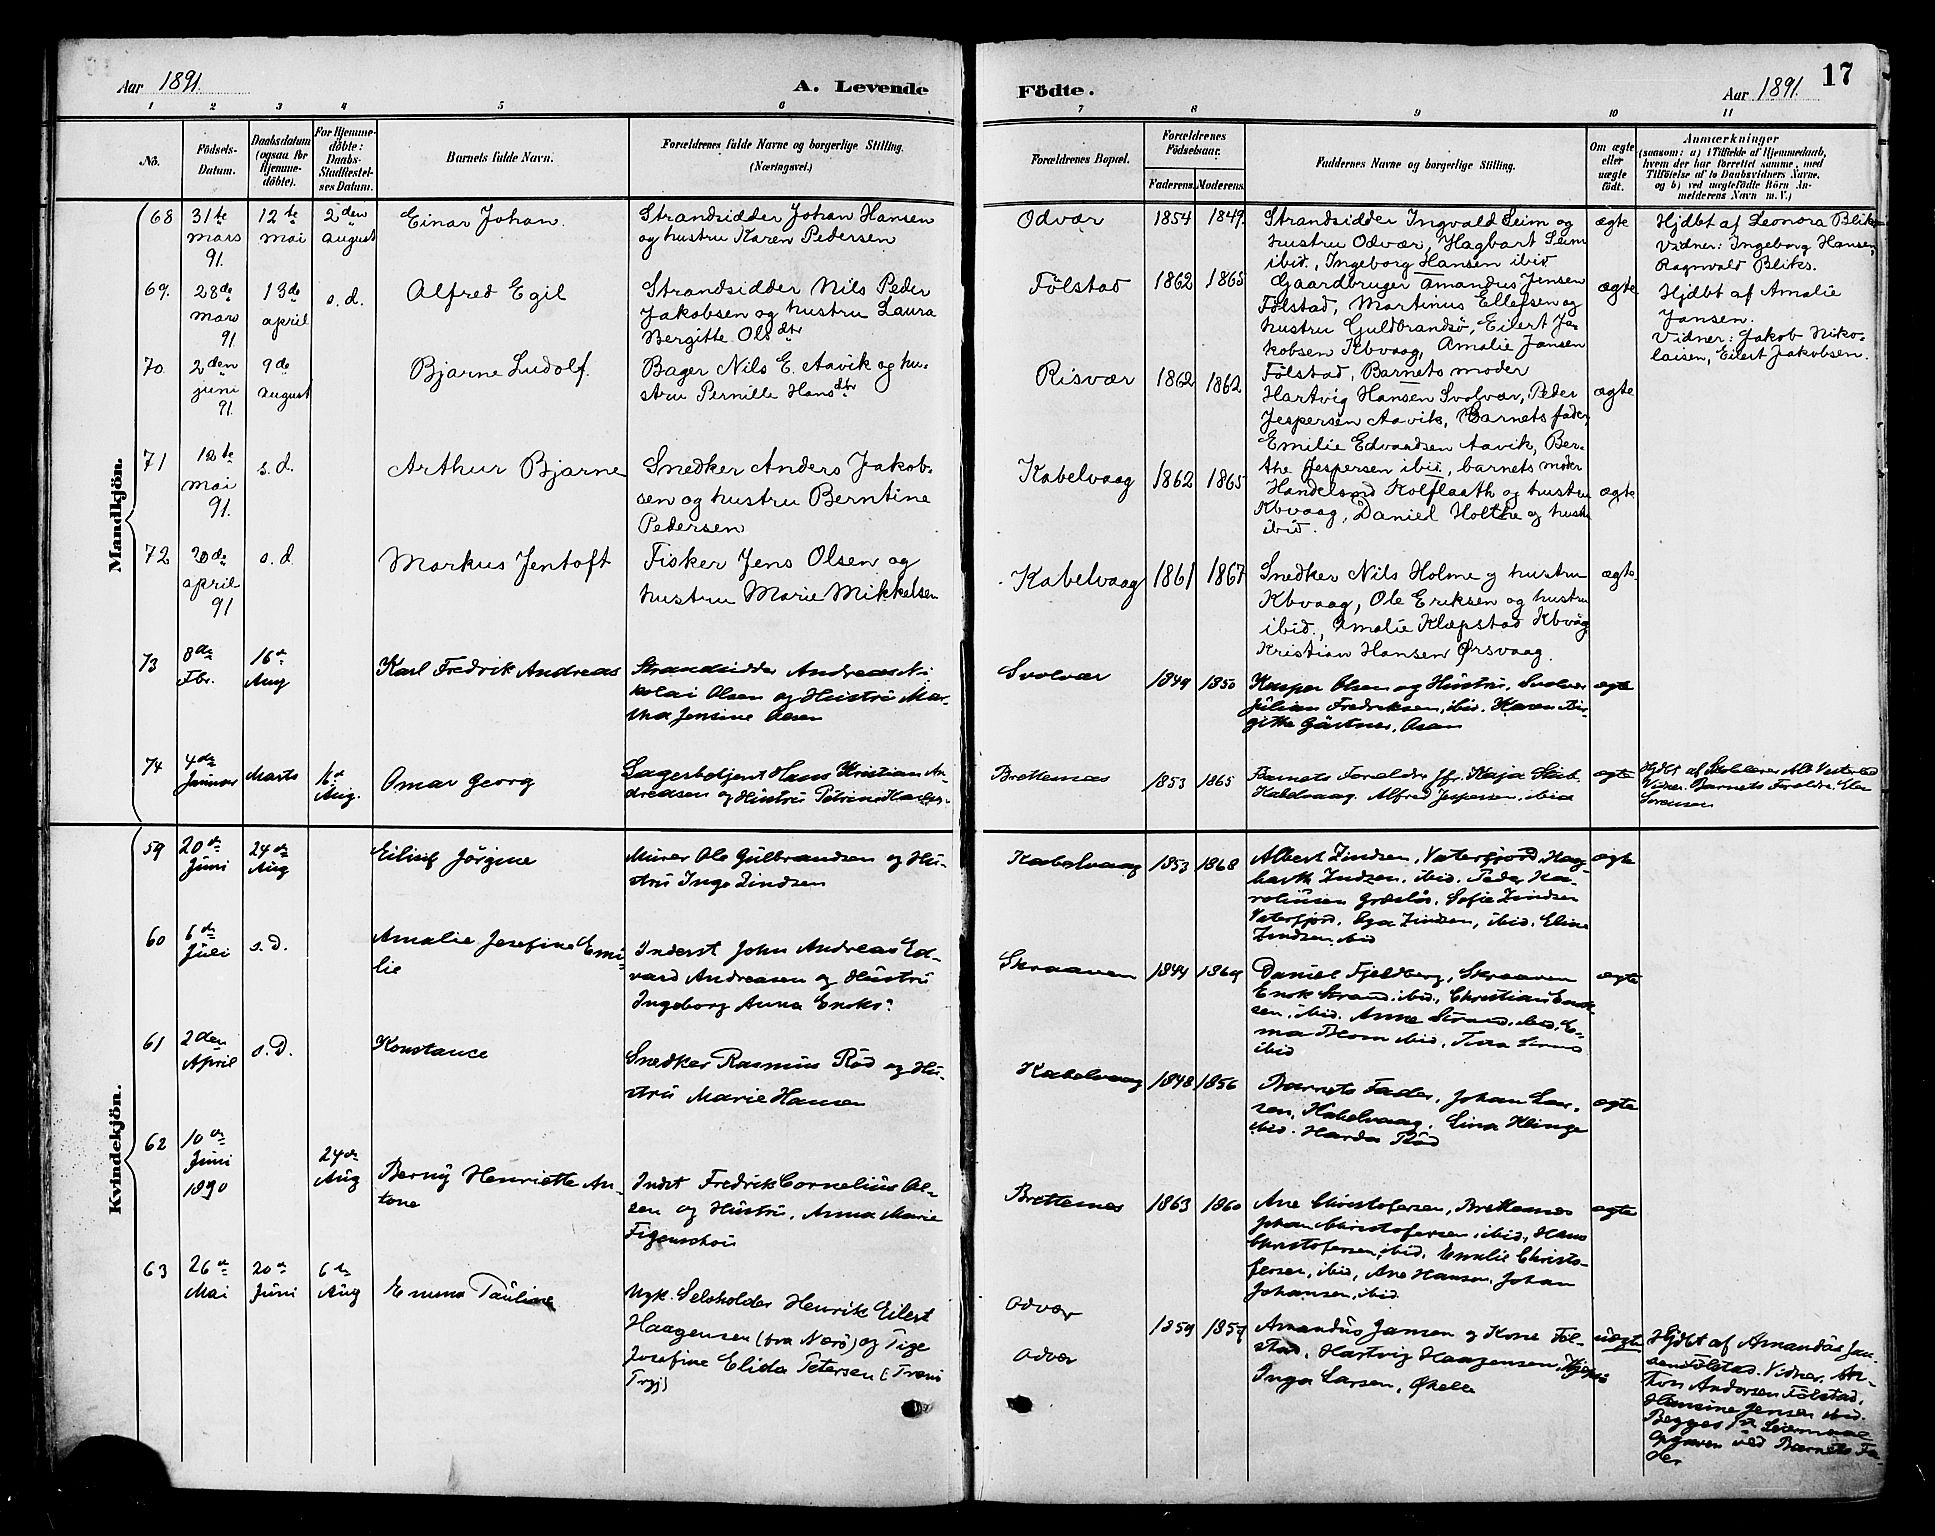 Aar 1891.
A. Levende
Födte.
Aar 1891.
17
1 2 3 4 5 6 7 8 9 10 11
No.
Födsels-
Datum.
Daabsdatum
(ogsaa for
Hjemme-
döbte).
For Hjemme-
döbte:
Daabs-
Stadfæstel-
ses Datum.
Barnets fulde Navn.
Forældrenes fulde Navne og borgerlige Stilling.
(Næringsvei.)
Forældrenes Bopæl.
Forældrenes
Födselsaar.
Faderens. Moderens.
Faddernes Navne og borgerlige Stilling.
Om ægte
eller
uægte
födt.
Anmærkninger
(saasom: a) i Tilfælde af Hjemmedaab,
hvem der har forrettet samme, med
Tilföielse af to Daabsvidners Navne.
og b) ved uægtefödte Börn An-
melderens Navn m. V.)
Mandkjön.
68
31te
mars
91.
12te
mai
2den
august
Einar Johan.
Strandsidder Johan Hansen
og hustru Karen Pedersen
Odvær
1854 1849
Strandsidder Ingvald Seim og
hustru Odvær, Hagbart Seim
ibid., Ingeborg Hansen ibid
ægte
Hjdbt af Leonora Bliks
Vidner: Ingeborg Hansen,
Ragnvald Bliks.
69.
28de
mars
91
13de
april
s. d.
Alfred Egil
Strandsidder Nils Peder
Jakobsen og hustru Laura
Bergitte Olsdtr
Følstad
1862 1865
Gaardbruger Amandus Jensen
Følstad, Martinus Ellefsen og
hustru Guldbrandsø, Eilert Ja-
kobsen Kbvaag, Amalie Jansen
Følstad, Barnets moder
ægte
Hjdbt af Amalie
Jansen.
Vidner: Jakob Niko-
laisen, Eilert Jakobsen.
70
2den
juni
91.
9de
august
Bjarne Ludolf.
Bager Nils E. Aavik og hu-
stru Pernille Hansdtr
Risvær
1862 1862
Hartvig Hansen Svolvær, Peder
Jespersen Aavik, Barnets fader,
Emilie Edvardsen Aavik, Ber-
the Jespersen ibid, barnets moder
ægte
71
mai
91.
s. d.
Arthur Bjarne
Snedker Anders Jakob-
sen og hustru Berntine
Pedersen
Kabelvaag
1862 1865
Handelsmd Kolflaath og hustru
Kbvaag, Daniel Holthe og hustru
ibid.
ægte
72
20de
april
91
s. d.
Markus Jentoft
Fisker Jens Olsen og
hustru Marie Mikkelsen
Kabelvaag
1861 1867
Snedker Nils Holme og hustru
Kbvaag, Ole Eriksen og hustru
ibid., Amalie Klæpstad Kbvåg
Kristian Hansen Ørsvaag.
ægte
73
8de
Fbr.
16de
Aug
Karl Fredrik Andreas
Strandsidder Andreas Ni-
kolai Olsen og Hustru Mar-
tha Jensine Olsen
Svolvær
1849 1850
Kasper Olsen og Hustru, Svolvær
Julian Fredriksen, ibid. Karen Bir-
gitte Gärtner, Osan
ægte
74
4de
Januar
Marts
16de
Aug.
Omar Georg
Hans Kristian An-
dreasen og Hustru
Brettesnæs
1853 1865
Barnets Forældre, Jfr. Kaja
Kabelvaag. Alfred Jespersen, ibid
ægte
Hjdbt af
Vidner. Barnets Forældre,
Sørensen
Kvindekjön.
59
20de
Juni
24de
Aug
Eilisif Jörgine
Murer Ole Gulbrandsen og Hu-
stru Inga Zindsen
Kabelvaag
1853 1868
Albert Zindsen, Vaterfjord, Hag-
barth Zindsen, ibid. Peder Ka-
rolinsen Græsløs. Sofie Zindsen
Vaterfjord, Zindsen, ibid. Eline
Zindsen, ibid
ægte
60
6de
Juli
s. D.
Amalie Josefine Emi-
lie
Inderst John Andreas Ed-
vard Andreasen og Hustru
Ingeborg Anna Enoks.
Skraaven
1844 1869
Daniel Fjeldberg, Skraaven
Enok Strand ibid, Christian Enok-
sen, ibid. Anne Strand, ibid, E-
ma ibid,
ibid
ægte
61
2den
April
s. D.
Konstance
Snedker Rasmus Röd og Hu-
stru Marie Hansen
Kabelvaag
1848 1856
Barnets Fader, Johan Lar-
sen, Kabelvaag, Lina Klinge
ibid. Harda Röd
ægte
62
10de
Juni
1890
24de
Aug
Berny Henriette An-
tone
Indst Fredrik Cornelius Ol-
sen og Hustru, Anna Marie
Figenschou
Brettesnes
1863 1860
Ane Christofersen, Brettesnes
Johan Christofersen, ibid, Hans
Christofersen, ibid, Emelie Christo-
fersen, ibid, Ane Hansen, Johan
Johansen, ibid
ægte
63
26de
Mai
20de
Juni
6te
Aug
Emma Pauline
Ugk. Selvholder Henrik Eilert
Haagensen (fra Nærö) og Pige
Josefine Elida Petersen (
Odvær
Odvær
1859 1857
Amandus Jansen og Kone Föl-
stad, Hartvig Haagensen,
Inga Larsen,
uægte
Hjdbt af Amandus Jan-
sen Fölstad. Vidner. An-
ton Andersen Fölstad,
Hansine Jensen ibid.
Begges Leiermaal
Opgaven ved Barnets Fa-
der